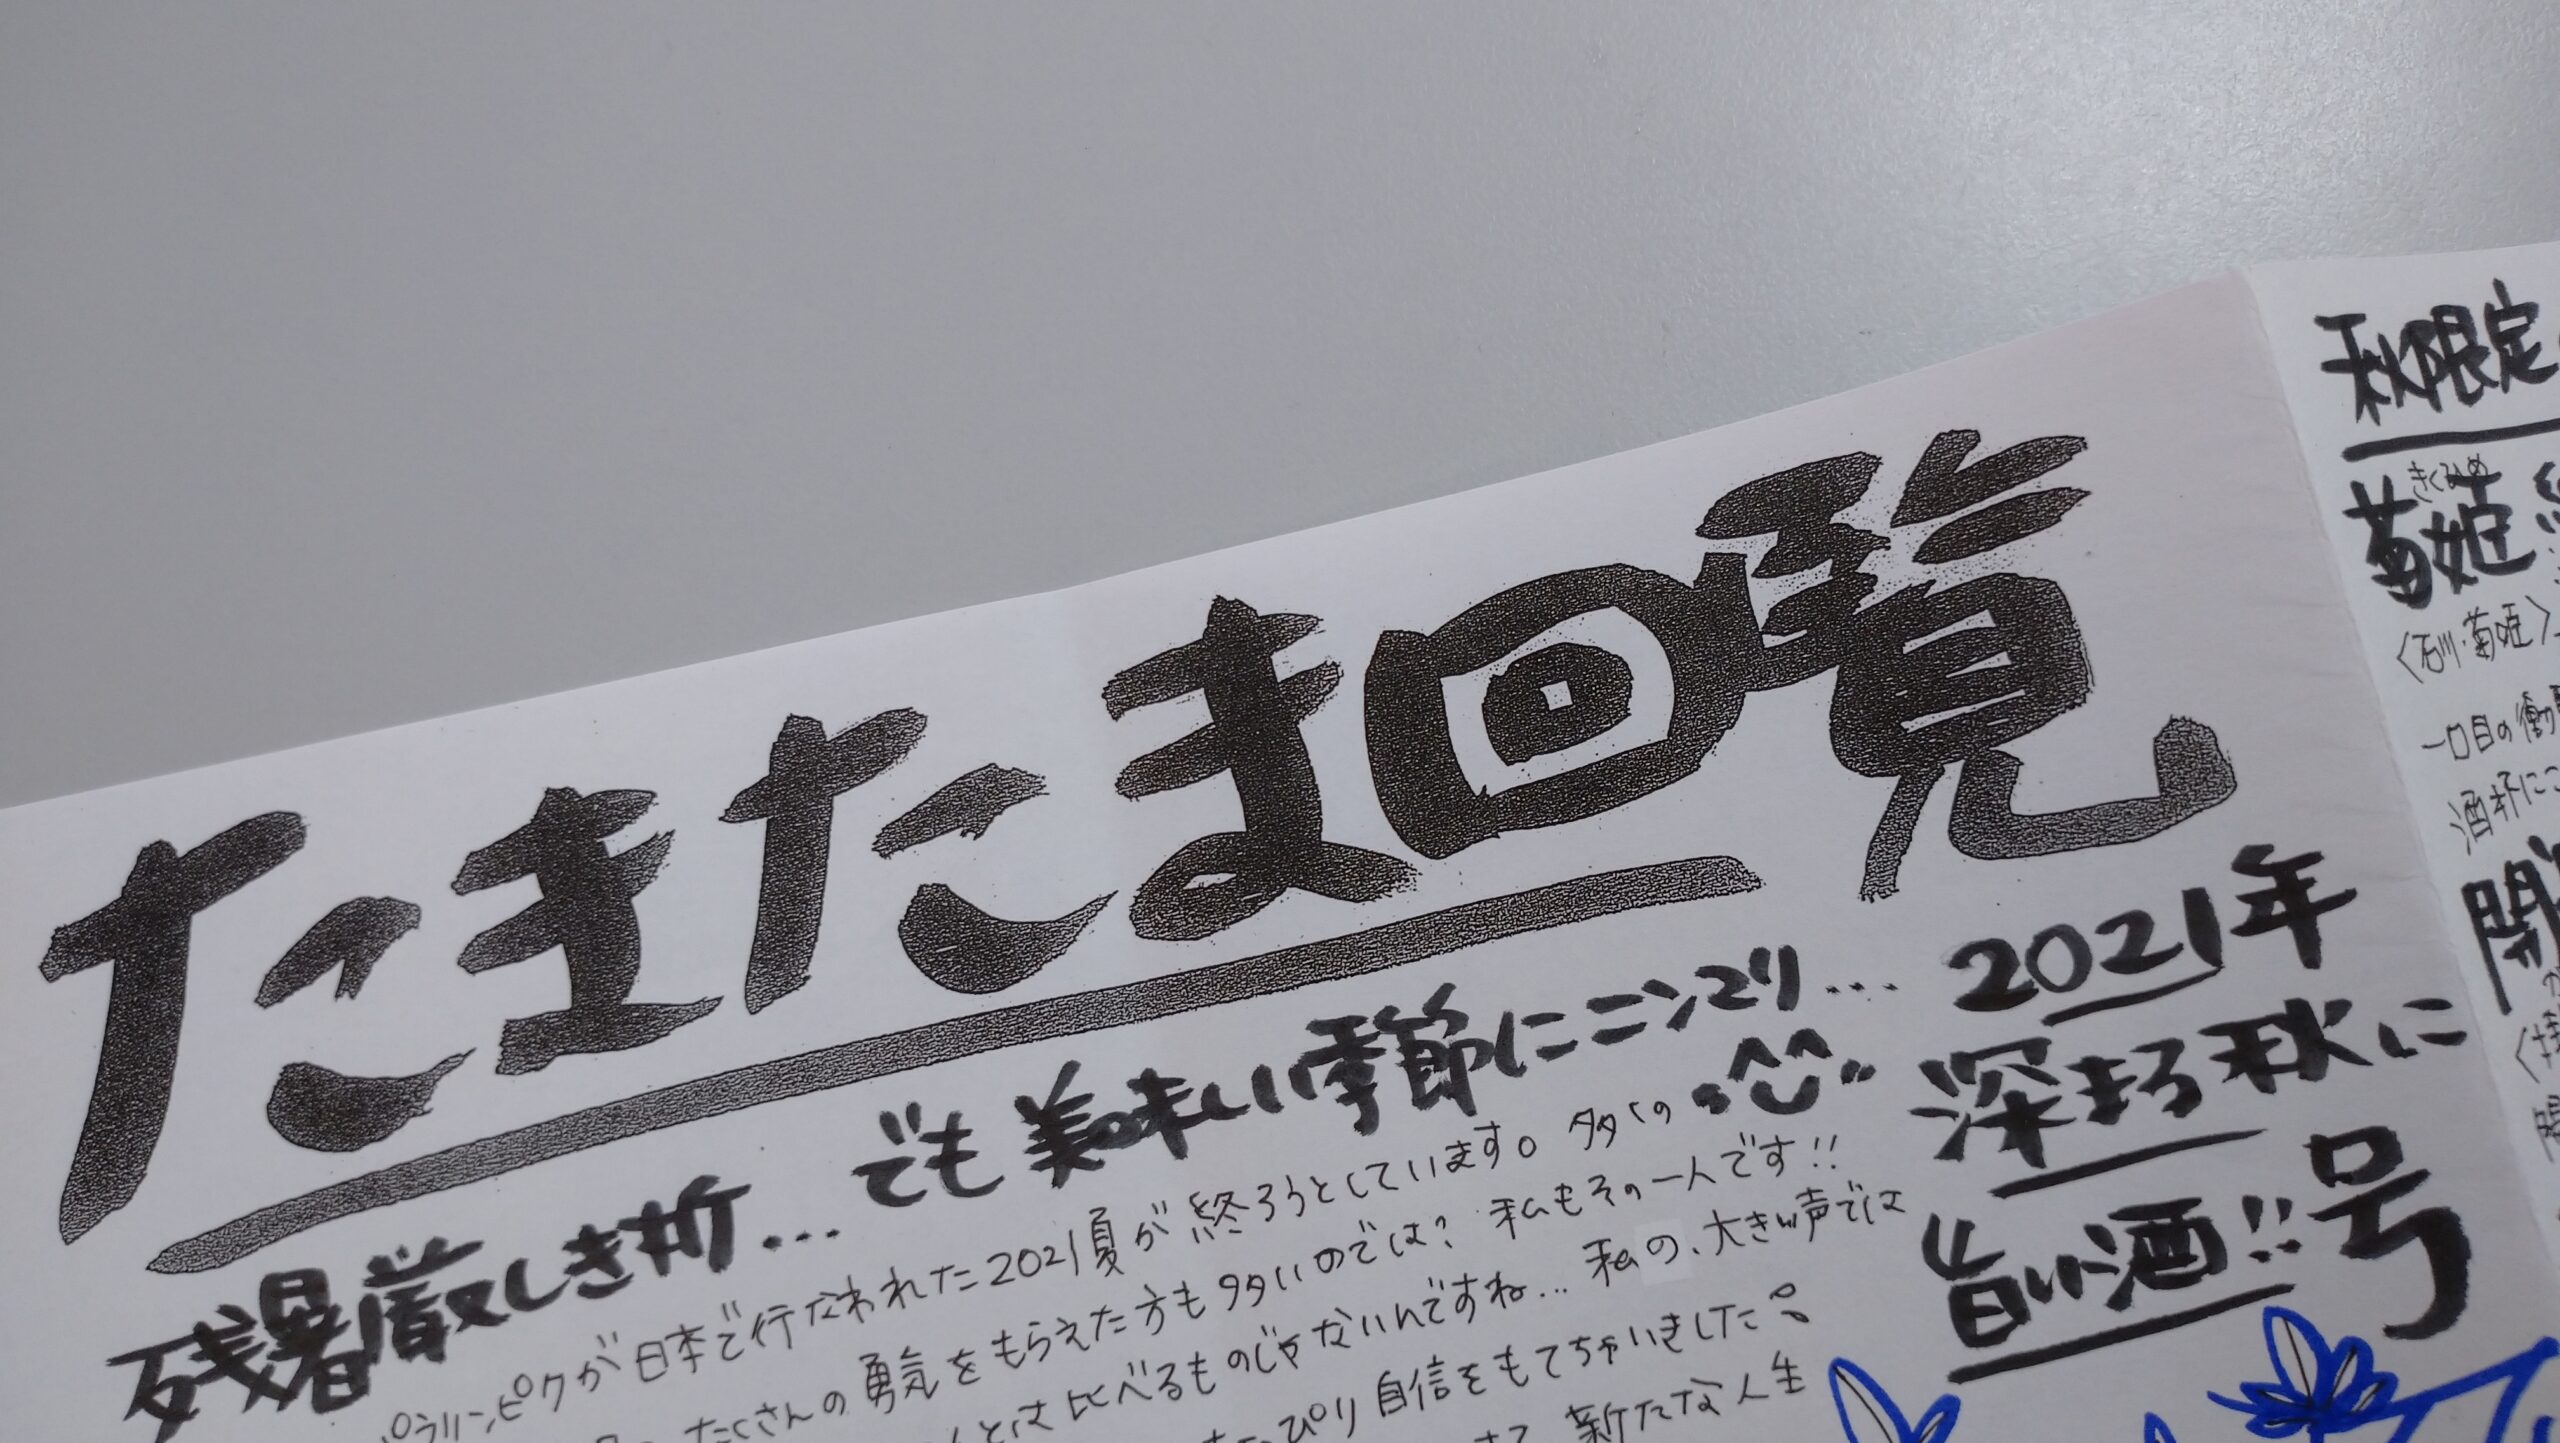 たまたま回覧
残暑厳しき折… でも美味しい季節にニンマリ…
パラリンピックが日本で行なわれた2021夏が終ろうとしています。多くの
たくさんの勇気をもらえた方も多いのでは? 私もその一人です!!
とは比べるものじゃないんですね… 私の、大きい声では
っぴり自信をもてちゃいました。
新たな人生
2021年
深まる秋に
旨い酒!!号
秋限定
きくひめ
菊姫
〈石川・菊姫〉
一口目の衝
酒杯にこ
開